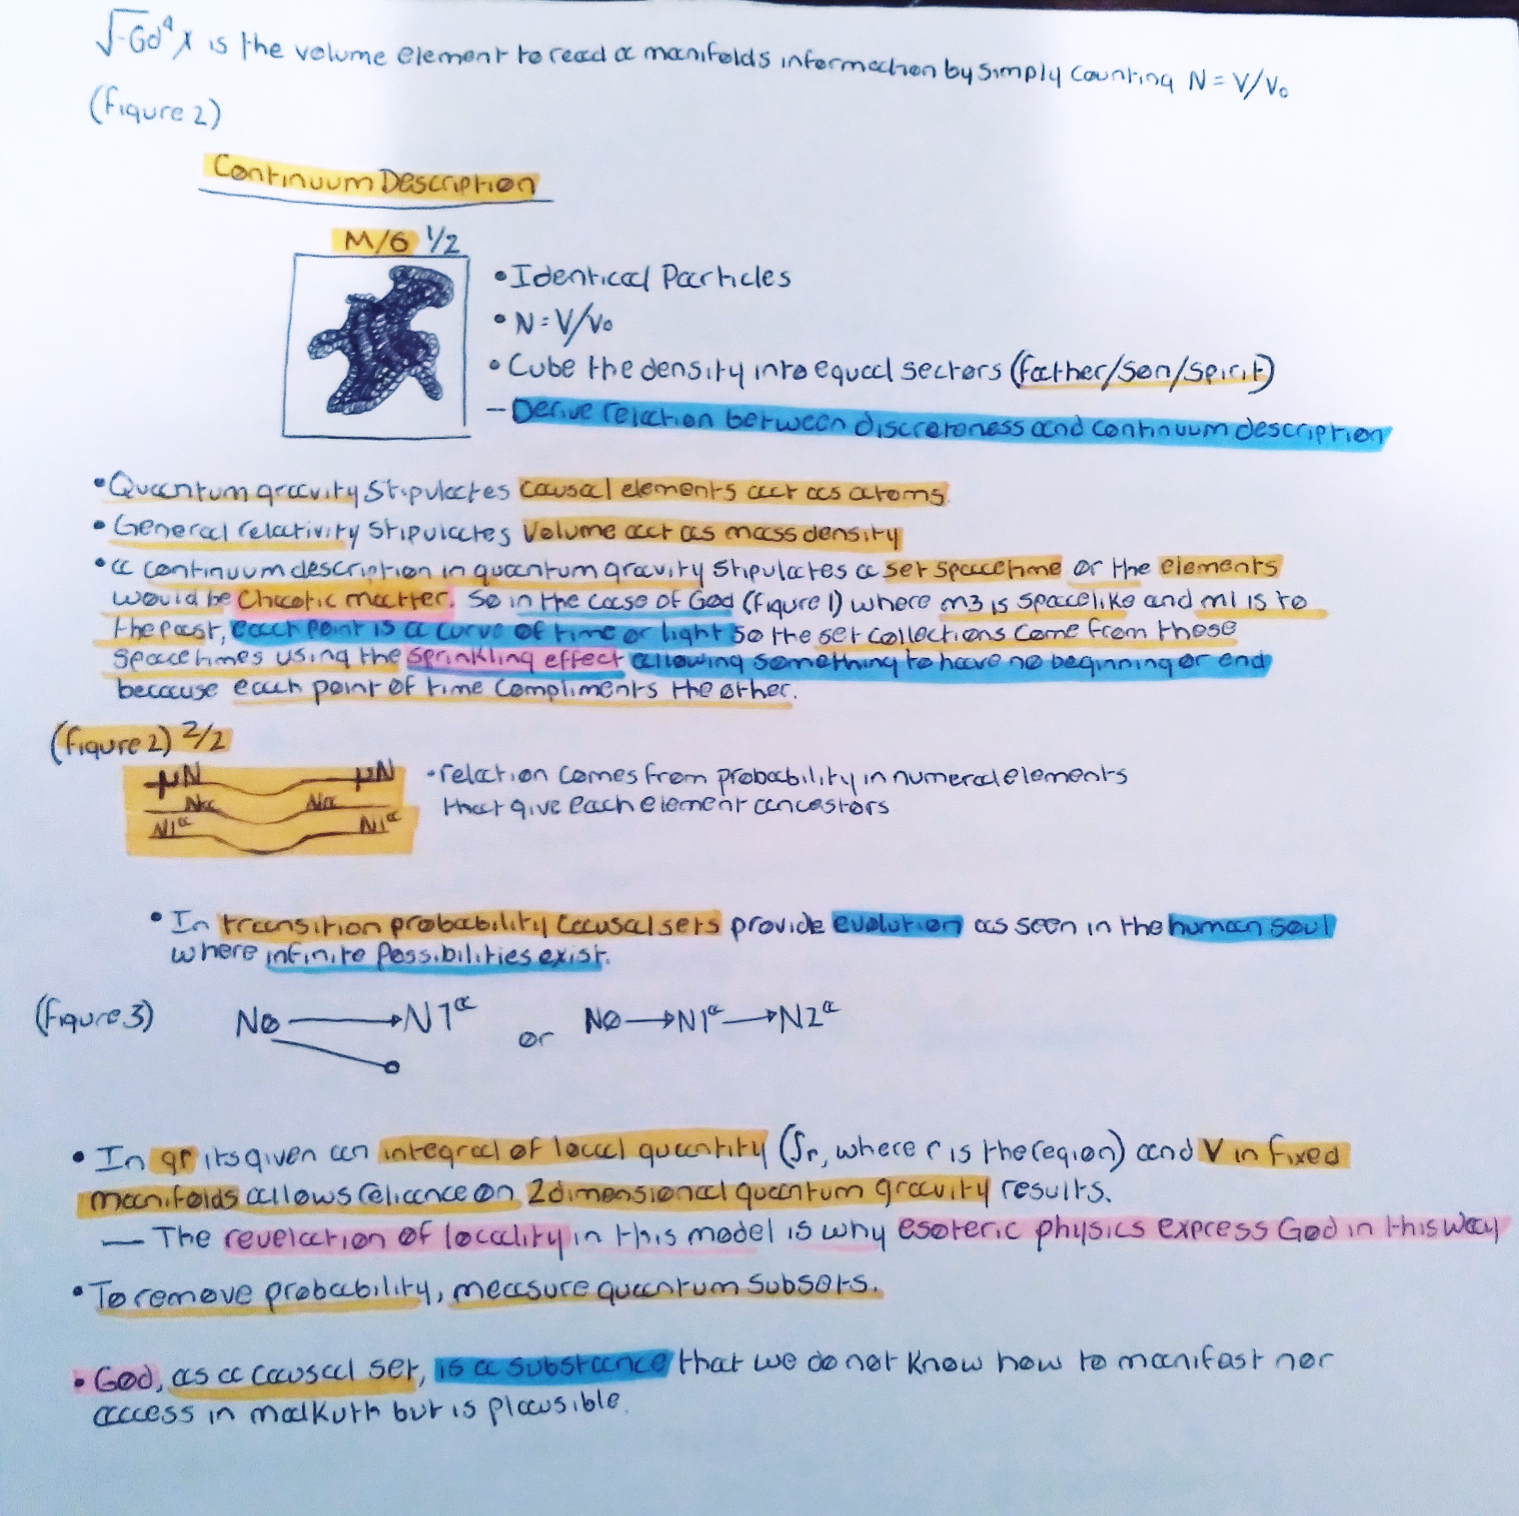 √-Gd⁴x is the volume element to read a manifolds information by simply counting N = V/V₀
(figure 2)
Continuum Description
M/G 1/2
• Identical Particles
• N = V/V₀
• Cube the density into equal sectors (father/son/spirit)
– Derive relation between discreteness and continuum description
• Quantum gravity stipulates causal elements act as atoms.
• General relativity stipulates volume act as mass density
• a continuum description in quantum gravity stipulates a set spacetime or the elements
would be chaotic matter. So in the case of God (figure 1) where m3 is spacelike and m1 is to
the past, each point is a curve of time or light so the set collections come from those
spacetimes using the sprinkling effect allowing something to have no beginning or end
because each point of time compliments the other.
(figure 2) 2/2
μN μN
Na Na
N1ᵃ N1ᵃ
• relation comes from probability in numeral elements
that give each element ancestors
• In transition probability causal sets provide evolution as seen in the human soul
where infinite possibilities exist.
(figure 3) NØ → N1ᵃ or NØ → N1ᵃ → N2ᵃ
• In gr its given an integral of local quantity (∫r, where r is the region) and V in fixed
manifolds allows reliance on 2dimensional quantum gravity results.
— The revelation of locality in this model is why esoteric physics express God in this way
• To remove probability, measure quantum subsets.
• God, as a causal set, is a substance that we do not know how to manifest nor
access in malkuth but is plausible.